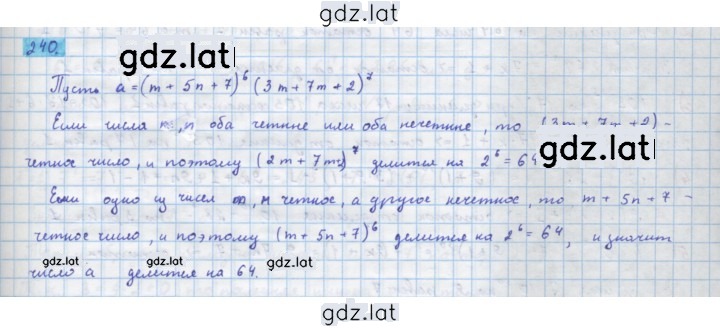 gdz.lat
240.
gdz.lat
Пусть a = (m + 5n + 7)^6 (3m + 7m + 2)^7
Если числа m, n оба четные или оба нечетные, то (3m + 7n + 2) -
четное число, и поэтому (2m + 7m)^7 делится на 2^6 = 64
gdz.lat
Если одно из чисел m, n четное, а другое нечетное, то m + 5n + 7 -
четное число, и поэтому (m + 5n + 7)^6 делится на 2^6 = 64, и значит
число a делится на 64.
gdz.lat
gdz.lat
gdz.lat